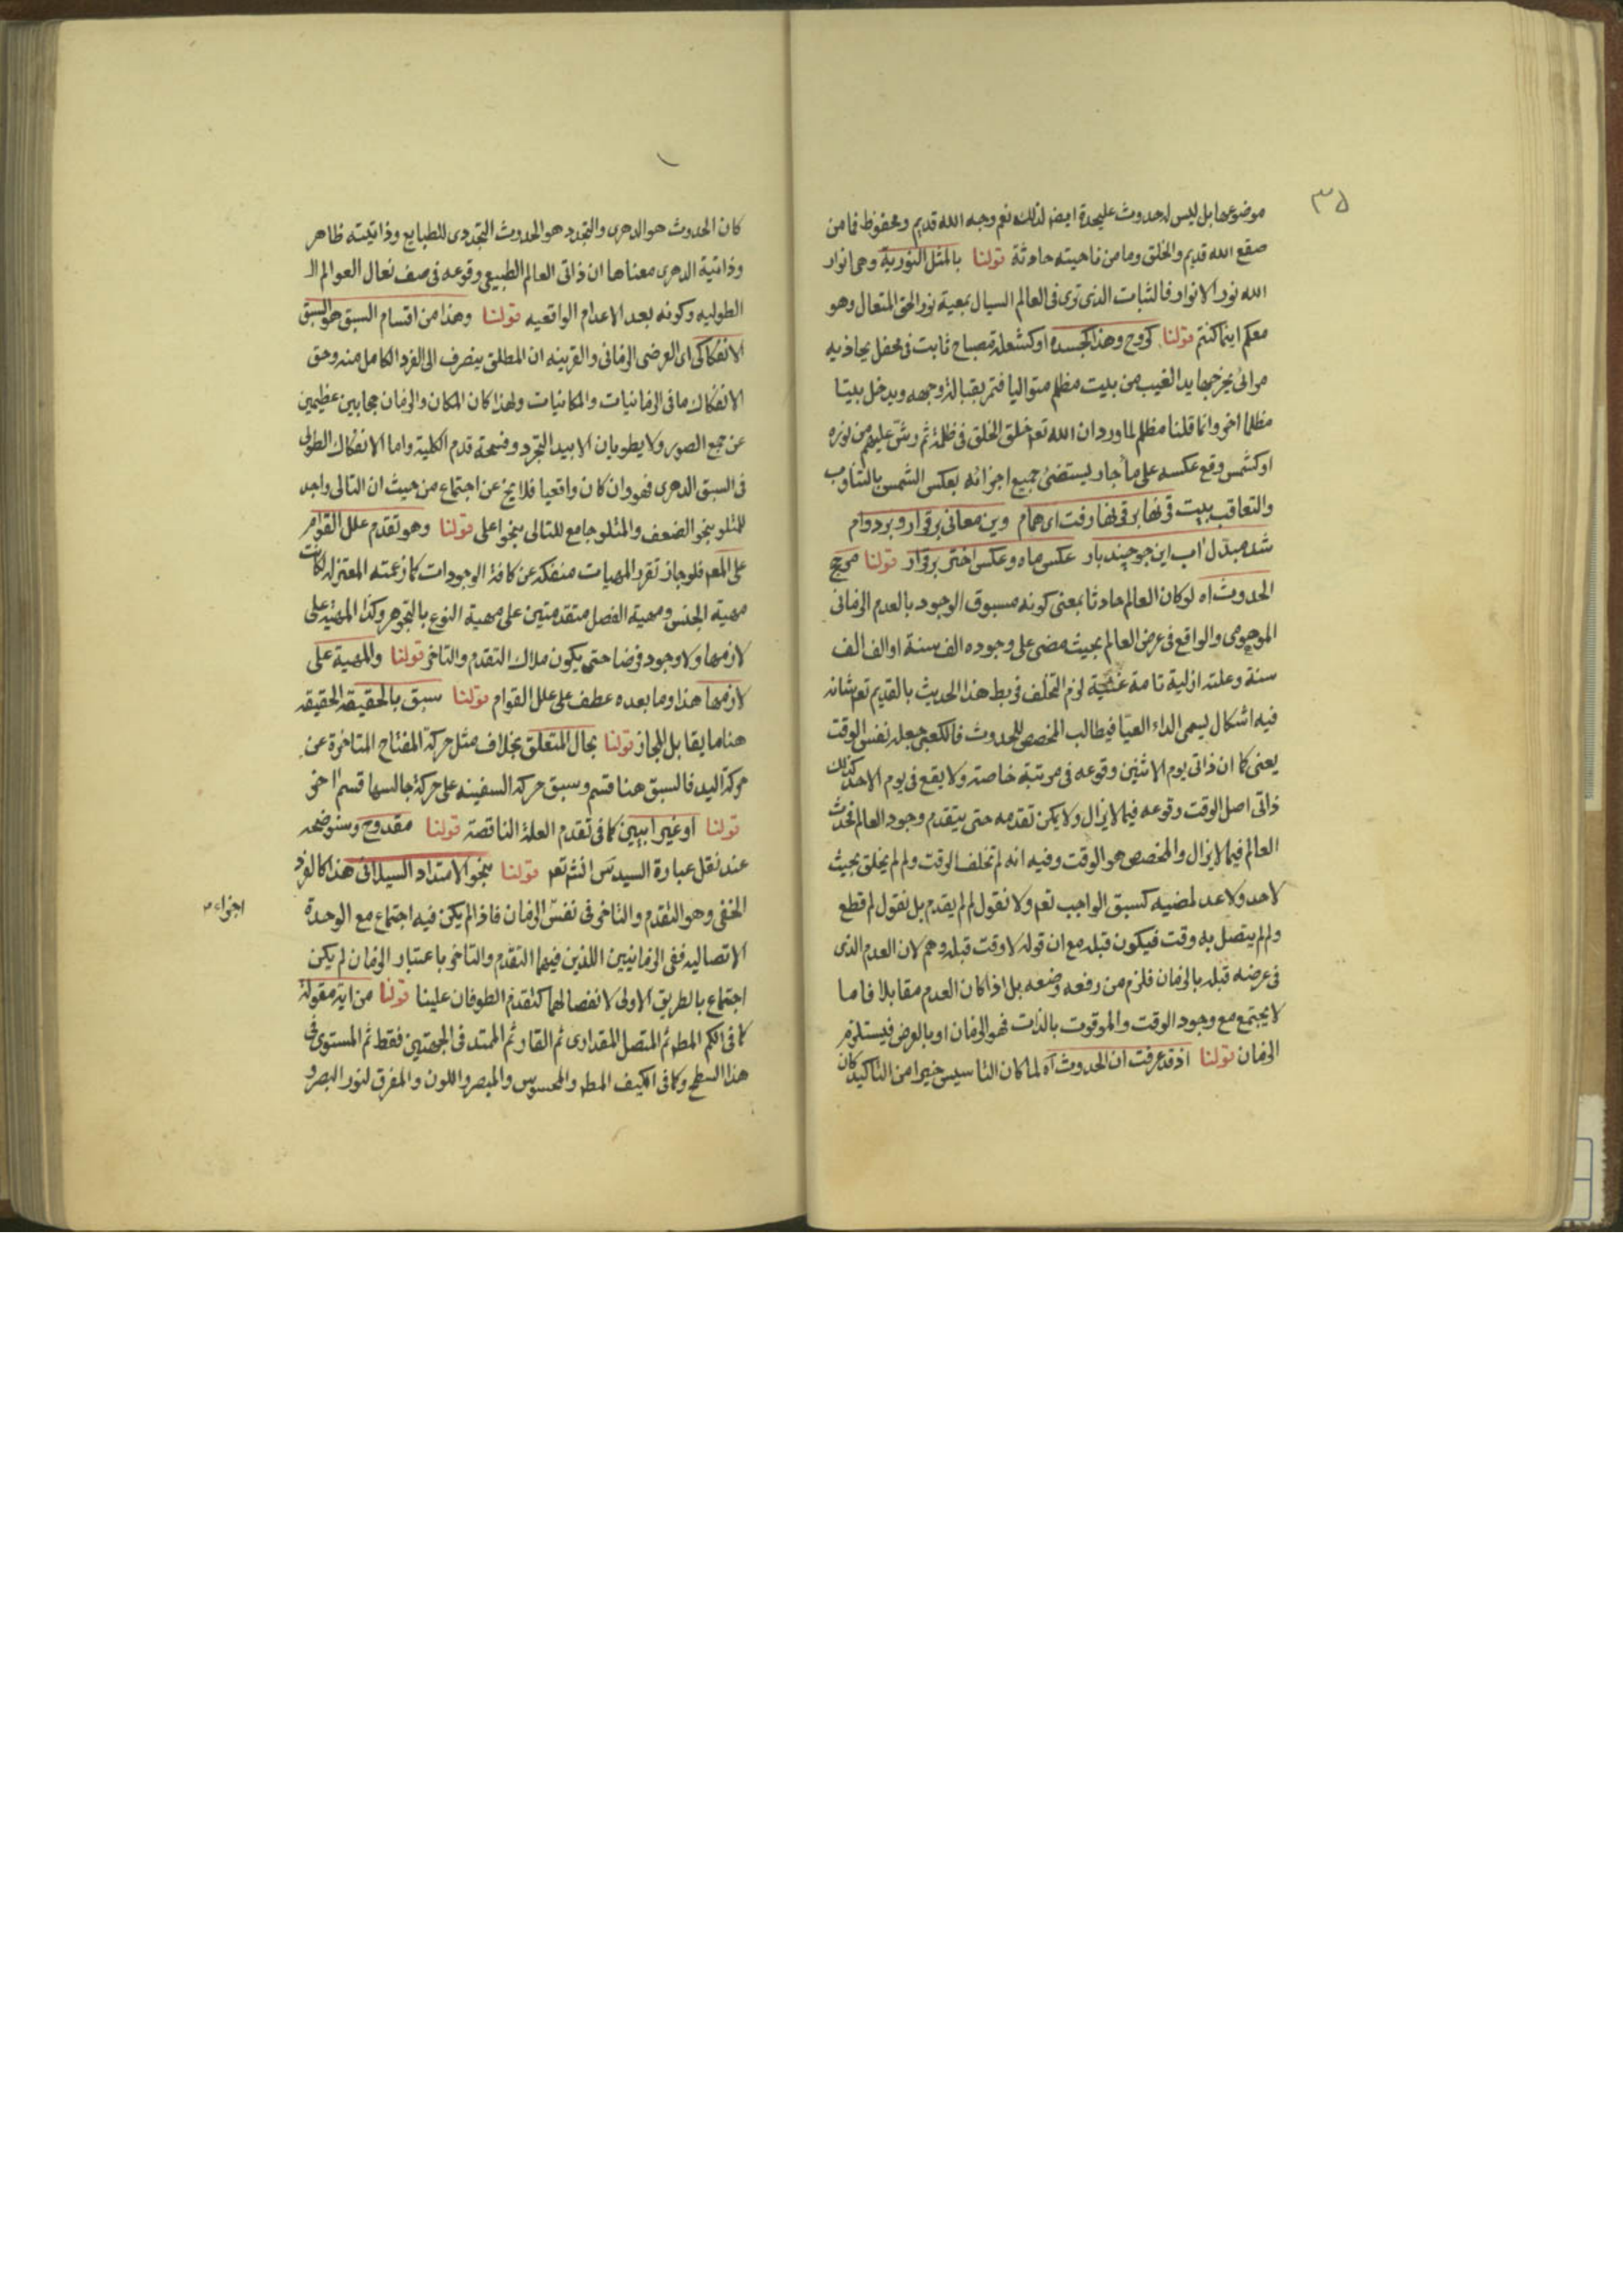 ٣٥
موضوعها بل ليس له حدوث عليحدة ايضا لذلك نعم وجه الله قديم ومحفوظ فما من
صقع الله قديم والخلق وما من ناحيته حادثة قولنا بالمثل النورية وهى انوار
الله نور الانوار فالثبات الذى ترى فى العالم السيال بمعية نور الحق المتعال وهو
معكم اينما كنتم قولنا كروح وهذا كجسده او كشعلة مصباح ثابت فى محفل يحاذيه
مرائى يخرجها يد الغيب من بيت مظلم متواليا فتمر بقبالة وجهه ويدخل بيتا
مظلما اخر وانما قلنا مظلم لما ورد ان الله تعم خلق الخلق فى ظلمة ثم رش عليهم من نوره
او كشمس وقع عكسه على ماء جار يستضئ جميع اجزائه بعكس الشمس بالتناوب
والتعاقب بيت قرنها بر قرنها رفت اى همام وين معانى برقرار و بر دوام
شد مبدل اب اين جو چند بار عكس ماه و عكس اختر برقرار قولنا مرجح
الحدوث اه لو كان العالم حادثا بمعنى كونه مسبوق الوجود بالعدم الزمانى
الموهومى والواقع فى عرض العالم بحيث مضى على وجوده الف سنة او الف الف
سنة وعلته ازلية تامة غنية لزم التخلف فربط هذا الحديث بالقديم تعم شانه
فيه اشكال ليسمى الداء العيا فيطالب المخصص للحدوث فالكعبى جعله نفس الوقت
يعنى كما ان ذاتى يوم الاثنين وقوعه فى مرتبة خاصة ولا يقع فى يوم الاحد كذلك
ذاتى اصل الوقت وقوعه فيما لايزال ولا يمكن تقدمه حتى يتقدم وجود العالم فحدث
العالم فيما لايزال والمخصص هو الوقت وفيه انه لم تخلف الوقت ولم لم يخلق بحيث
لاحد ولا عد لمضيه كسبق الواجب تعم ولا نقول لم لم يقدم بل نقول لم قطع
ولم لم يتصل به وقت فيكون قبله مع ان قوله لا وقت قبله وهم لان العدم الذى
فى عرضه قبله بالزمان فلزم من رفعه وضعه بل اذا كان العدم مقابلا فاما
لا يجتمع مع وجود الوقت والموقوت بالذات فهو الزمان او بالعرض فيستلزم
الزمان قولنا اذ قد عرفت ان الحدوث اه لما كان التاسيس خيرا من التاكيد كان
كان الحدوث هو الدهرى والتجدد هو الحدوث التجددى للطبايع وذاتيته ظاهر
وذاتية الدهرى معناها ان ذاتى العالم الطبيعى وقوعه فى صف نعال العوالم الـ
الطوليه وكونه بعد الاعدام الواقعيه قولنا وهذا من اقسام السبق هو السبق
الانفكاكى اى العرضى الزمانى والقرينه ان المطلق ينصرف الى الفرد الكامل منه وحق
الانفكاك ما فى الزمانيات والمكانيات ولهذا كان المكان والزمان حجابين عظيمين
عن جمع الصور ولا يطويان الا بيد التجرد وفسحة قدم الكلية واما الانفكاك الطولى
فى السبق الدهرى فهو وان كان واقعيا فلا يخ عن اجتماع من حيث ان التالى واجد
للمتلو بنحو الضعف والمتلو جامع للتالى بنحو اعلى قولنا وهو تقدم علل القوام
على المعم فلو جاز تقرر المهيات منفكه عن كافة الوجودات كما زعمته المعتزله لكانت
مهية الجنس ومهية الفصل متقدمتين على مهية النوع بالتجوهر وكذا المهية على
لازمها ولا وجود فرضا حتى يكون ملاك التقدم والتاخر قولنا والمهية على
لازمها هذا وما بعده عطف على علل القوام قولنا سبق بالحقيقة الحقيقه
هنا ما يقابل المجاز قولنا بحال المتعلق بخلاف مثل حركة المفتاح المتاخرة عن
حركة اليد فالسبق هنا قسم وسبق حركة السفينه على حركة جالسها قسم اخر
قولنا او غير ابيين كما فى تقدم العلة الناقصة قولنا مقدوح وسنوضحه
عند نقل عبارة السيد س انشه تعم قولنا بنحو الامتداد السيلانى هذا كالفرد
الخفى وهو التقدم والتاخر فى نفس الزمان فاذا لم يكن فيه اجتماع مع الوحدة
اجزاء
الاتصاليه ففى الزمانيين اللذين فيهما التقدم والتاخر باعتبار الزمان لم يكن
اجتماع بالطريق الاولى لانفصالهما كتقدم الطوفان علينا قولنا من اية مقولة
كما فى الكم المطم ثم المتصل المقدارى ثم القار ثم الممتد فى الجهتين فقط ثم المستوى فى
هذا السطح وكما فى الكيف المطم والمحسوس والمبصر واللون والمفرق لنور البصر و